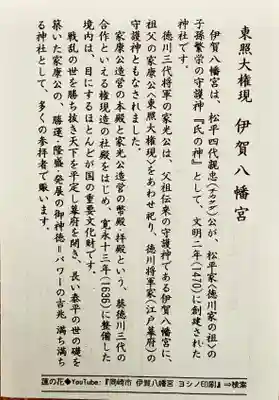 東照大権現　伊賀八幡宮
伊賀八幡宮は、松平四代親忠(チカタダ)公が、松平家〈徳川家〉の祖の
子孫繁栄の守護神『氏の神』として、文明二年(1470)に創建された
神社です。
徳川三代将軍の家光公は、父祖伝来の守護神である伊賀八幡宮に、
祖父の家康公〈東照大権現〉をあわせ祀り、徳川将軍家(江戸幕府)の
守護神ともなされました。
家康公造営の本殿と家光公造営の幣殿・拝殿という、葵徳川三代の
合作といえる権現造の社殿をはじめ、寛永十三年(1636)に整備した
境内は、目にするほとんどが国の重要文化財です。
戦乱の世を勝ち抜き天下を平定し幕府を開き、長い泰平の世の礎を
築いた家康公の、勝運・隆盛・発展の御神徳＝パワーの吉兆　満ち満ち
る神社として、多くの参拝者で賑います。
蓮の花◆YouTube：『岡崎市 伊賀八幡宮 ヨシノ印刷』⇒検索